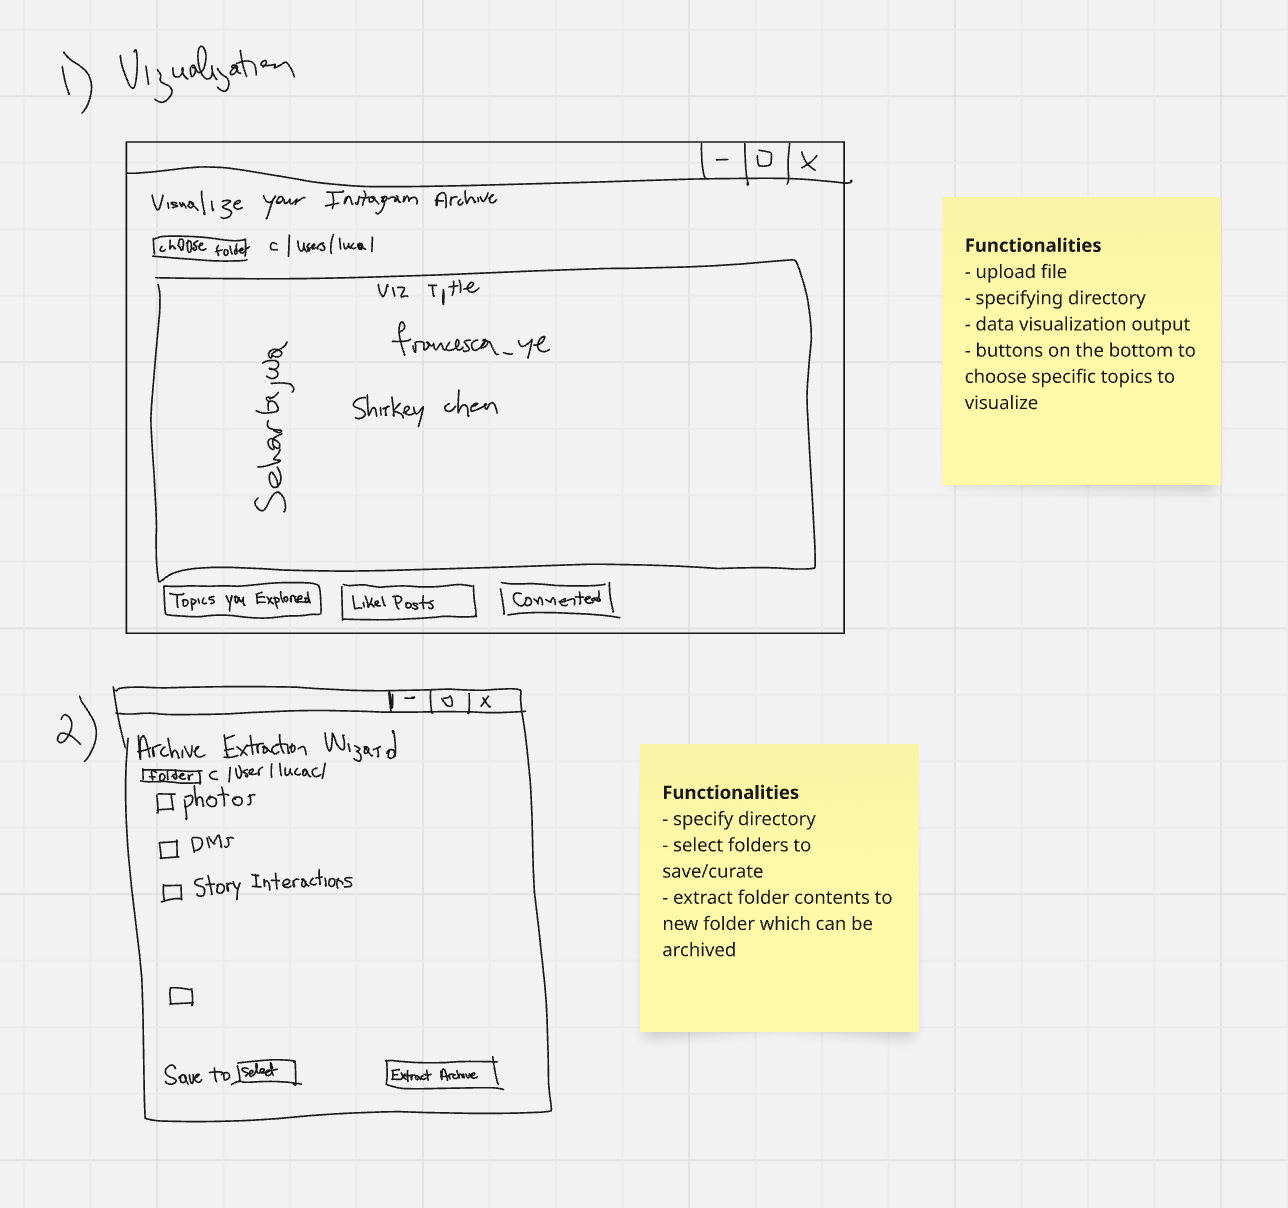 1) Vizualization
- O X
Visualize your Instagram Archive
choose folder c/users/luca/
Viz Title
francesca_ye
Shirkey chen
Topics you Explored
Likel Posts
Commented
Functionalities
- upload file
- specifying directory
- data visualization output
- buttons on the bottom to
choose specific topics to
visualize
2)
- O X
Archive Extraction Wizard
folder c/User/lucac/
photos
DMs
Story Interactions
Save to select
Extract Archive
Functionalities
- specify directory
- select folders to
save/curate
- extract folder contents to
new folder which can be
archived